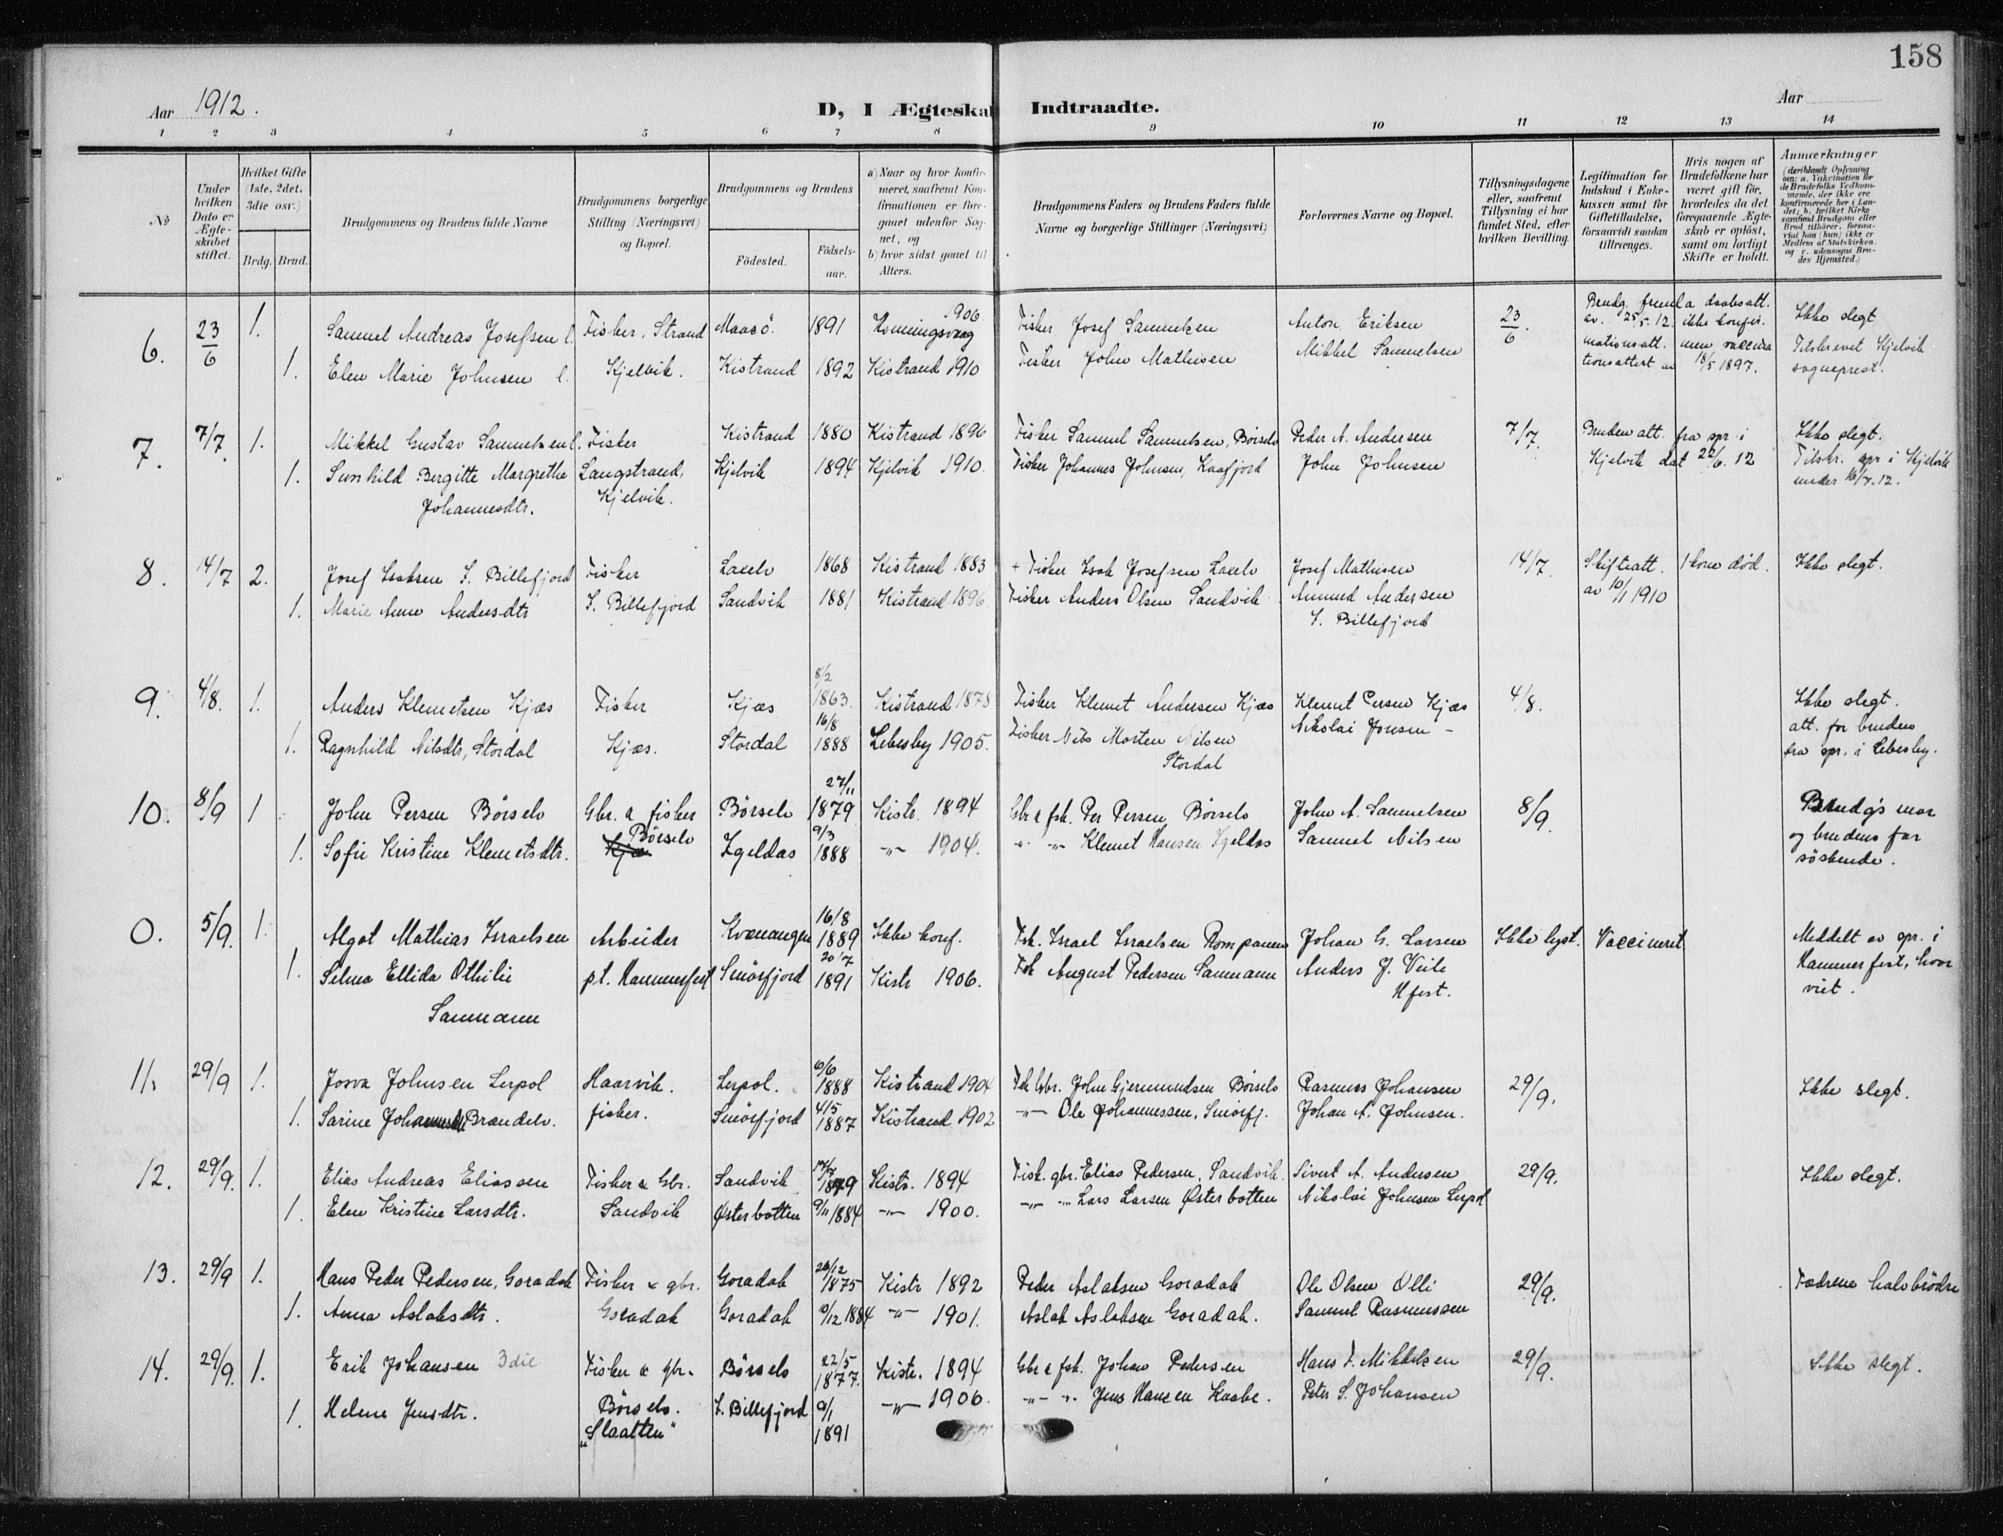 158
Aar 1912.
D, I Ægteska
Indtraadte.
Aar
1 2 3 4 5 6 7 8 9 10 11 12 13 14
No
Under hvilken Dato er Ægteskabet stiftet.
Hvilket Gifte (1ste, 2det, 3die osv.)
Brdg. Brud.
Brudgommens og Brudens fulde Navne
Brudgommens borgerlige Stilling (Næringsvei) og Bopæl.
Brudgommens og Brudens
Fødested.
Fødselsaar.
a) Naar og hvor konfirmeret, saafremt Konfirmationen er foregaaet udenfor Sognet, og
b) hvor sidst gaaet til Alters.
Brudgommens Faders og Brudens Faders fulde Navne og borgerlige Stillinger (Næringsvei)
Forlovernes Navne og Bopæl.
Tillysningsdagene eller, saafremt Tillysning ei har fundet Sted, efter hvilken Bevilling.
Legitimation for Indskud i Enkekassen samt for Giftetilladelse, forsaavidt saadan tiltrænges.
Hvis nogen af Brudefolkene har været gift før, hvorledes da det foregaaende Ægteskab er opløst, samt om lovligt Skifte er holdt.
Anmærkninger
6. 23/6 1. Samuel Andreas Josefsen Fisker, Strand Maasö. 1891 1906 Honningsvaag Fisker Josef Samuelsen Anton Eriksen 23/6. Brudg. fremla daabsatt. av. 25/5.12. ikke konfirmationsatt. men vaccinationsattest av 18/5 1897. Ikke slegt
1. Elen Marie Johnsen Kjelvik. Kistrand 1892 Kistrand 1910 Fisker John Mathisen Mikkel Samuelsen Tilskrevet Kjelvik sogneprest.
7. 7/7. 1. Mikkel Gustav Samuelsen Fisker Kistrand 1880 Kistrand 1896 Fisker Samuel Samuelsen, Börselv Peder A. Andersen 7/7. Bruden att. fra spr. i Kjelvik dat 22/6. 12 Ikke slegt.
1. Sunhild Bergitte Margrethe Johannesdtr. Langstrand, Kjelvik. Kjelvik 1894 Kjelvik 1910. Fisker Johannes Johnsen, Kaafjord John Johnsen Tilskr. spr i Kjelvik under 16/7.12.
8. 14/7 2. Josef Isaksen S. Billefjord Fisker Laxelv 1868 Kistrand 1883 + Fisker Isak Josefsen Laxelv Josef Mathisen 14/7. Skifteatt. av 10/1 1910 1 kone död. Ikke slegt.
1. Marie Anne Andersdtr S. Billefjord Sandvik 1881 Kistrand 1896 Fisker Anders Olsen Sandvik Ammund Andersen S. Billefjord
9. 4/8. 1. Anders Klemetsen Kjæs Fisker Kjæs 8/2 1863. Kistrand 1878 Fisker Klemet Andersen Kjæs Klemet Persen Kjæs 4/8. Ikke slegt.
1. Ragnhild Nilsdtr, Stordal Kjæs. Stordal 16/8 1888 Lebesby 1905. Fisker Nils Morten Nilsen Stordal Nikolai Jonsen - att. for bruden fra spr. i Lebesby.
10. 8/9 1 John Persen Börselv Gbr. & fisker Börselv Börselv 27/11 1879 Kistr. 1894 Gbr & fsk. Per Persen Börselv John A. Samuelsen 8/9. Brudg's mor og brudens far söskende.
1. Sofie Kristine Klemetsdtr. Igeldas 9/3 1888 -"- 1904. " -"- Klemet Hansen Igeldas Samuel Nilsen
0. 5/9. 1. Algot Mathias Israelsen Arbeider Kvænangen 16/8 1889 Ikke konf. Fsk. Israel Israelsen Johan G. Larsen Ikke lyst. Vaccineret. Meddelt av spr. i Hammerfest, hvor viet.
1. Selma Ellida Othilie Sanmann pt. Hammerfest Smörfjord 20/7 1891 Kistr 1906. Fsk August Pedersen Sanmann Anders J. Veile Hfest.
11. 29/9 1. Josva Johnsen Lerpol Haarvik. Lerpol. 10/6 1888 Kistrand 1904 Fsk Gbr. John Gjermundsen Börselv Rasmus Johansen 29/9. Ikke slegt.
1. Sarine Brandelv. fisker. Smörfjord 4/5 1887 Kistrand 1902 -"- Ole Johannessen, Smörfj. Johan A. Johnsen.
12. 29/9. 1. Elias Andreas Eliassen Fisker & Gbr. Sandvik 1879 Kistr. 1894 Fisk. gbr. Elias Pedersen, Sandvik. Sivert A. Andersen 29/9. Ikke slegt.
1. Elen Kristine Larsdtr. Sandvik Østerbotten 9/11 1884 -"- 1900. -"- -"- Lars Larsen Østerbotten Nikolai Johnsen Lerpol
13. 29/9 1. Hans Peder Pedersen, Goradak Fisker & gbr. Goradak 26/12 1875 Kistr 1892 Peder Aslaksen Goradak Ole Olsen Olli 29/9. Fædrene halvbrödre
1. Anna Aslaksdtr. Goradak Goradak 10/12 1884 -"- 1901. Aslak Aslaksen Goradak. Samuel Rasmussen
14. 29/9. 1. Erik Johansen 3die Fisker & gbr. Börselv 22/5 1877. Kistr. 1894 Gbr & fsk. Johan Pedersen Hans F. Mikkelsen 29/9. Ikke slegt.
1. Helene Jensdtr. Börselv. "Slaatten" S. Billefjord 9/1 1891 -"- 1906. -"- -"- Jens Hansen Kaabe. Peter S. Johansen